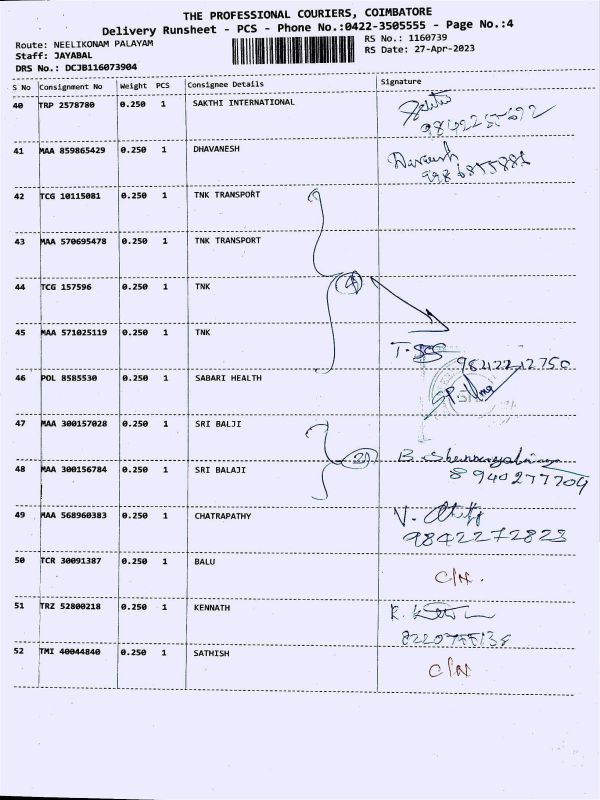 THE PROFESSIONAL COURIERS, COIMBATORE
Delivery Runsheet - PCS - Phone No.:0422-3505555 - Page No.:4
Route: NEELIKONAM PALAYAM
Staff: JAYABAL
DRS No.: DCJB116073904
RS No.: 1160739
RS Date: 27-Apr-2023
S No Consignment No Weight PCS Consignee Details Signature
40 TRP 2578780 0.250 1 SAKTHI INTERNATIONAL
41 MAA 859865429 0.250 1 DHAVANESH
42 TCG 10115081 0.250 1 TNK TRANSPORT
43 MAA 570695478 0.250 1 TNK TRANSPORT
44 TCG 157596 0.250 1 TNK
4
45 MAA 571025119 0.250 1 TNK
9842212750
46 POL 8585530 0.250 1 SABARI HEALTH
47 MAA 300157028 0.250 1 SRI BALJI
2
48 MAA 300156784 0.250 1 SRI BALAJI
8940277704
49 MAA 568960383 0.250 1 CHATRAPATHY
9842272823
50 TCR 30091387 0.250 1 BALU
C/N.
51 TRZ 52800218 0.250 1 KENNATH
52 TMI 40044840 0.250 1 SATHISH
C/N